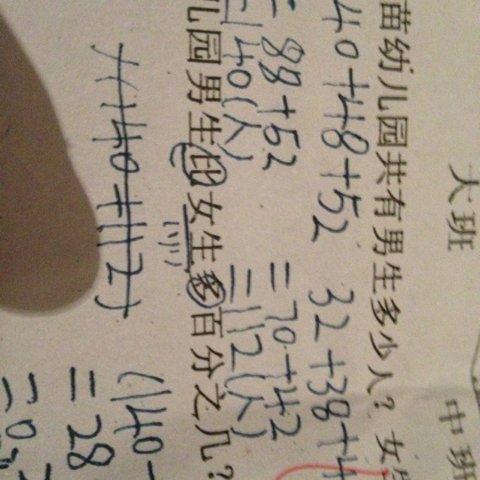 大班 中班
苗幼儿园共有男生多少人？女
40+48+52 32+38+4
=88+52 =70+42
=140(人) =112(人)
儿园男生比女生多百分之几？
(140+112)
(140-
=28
=0.